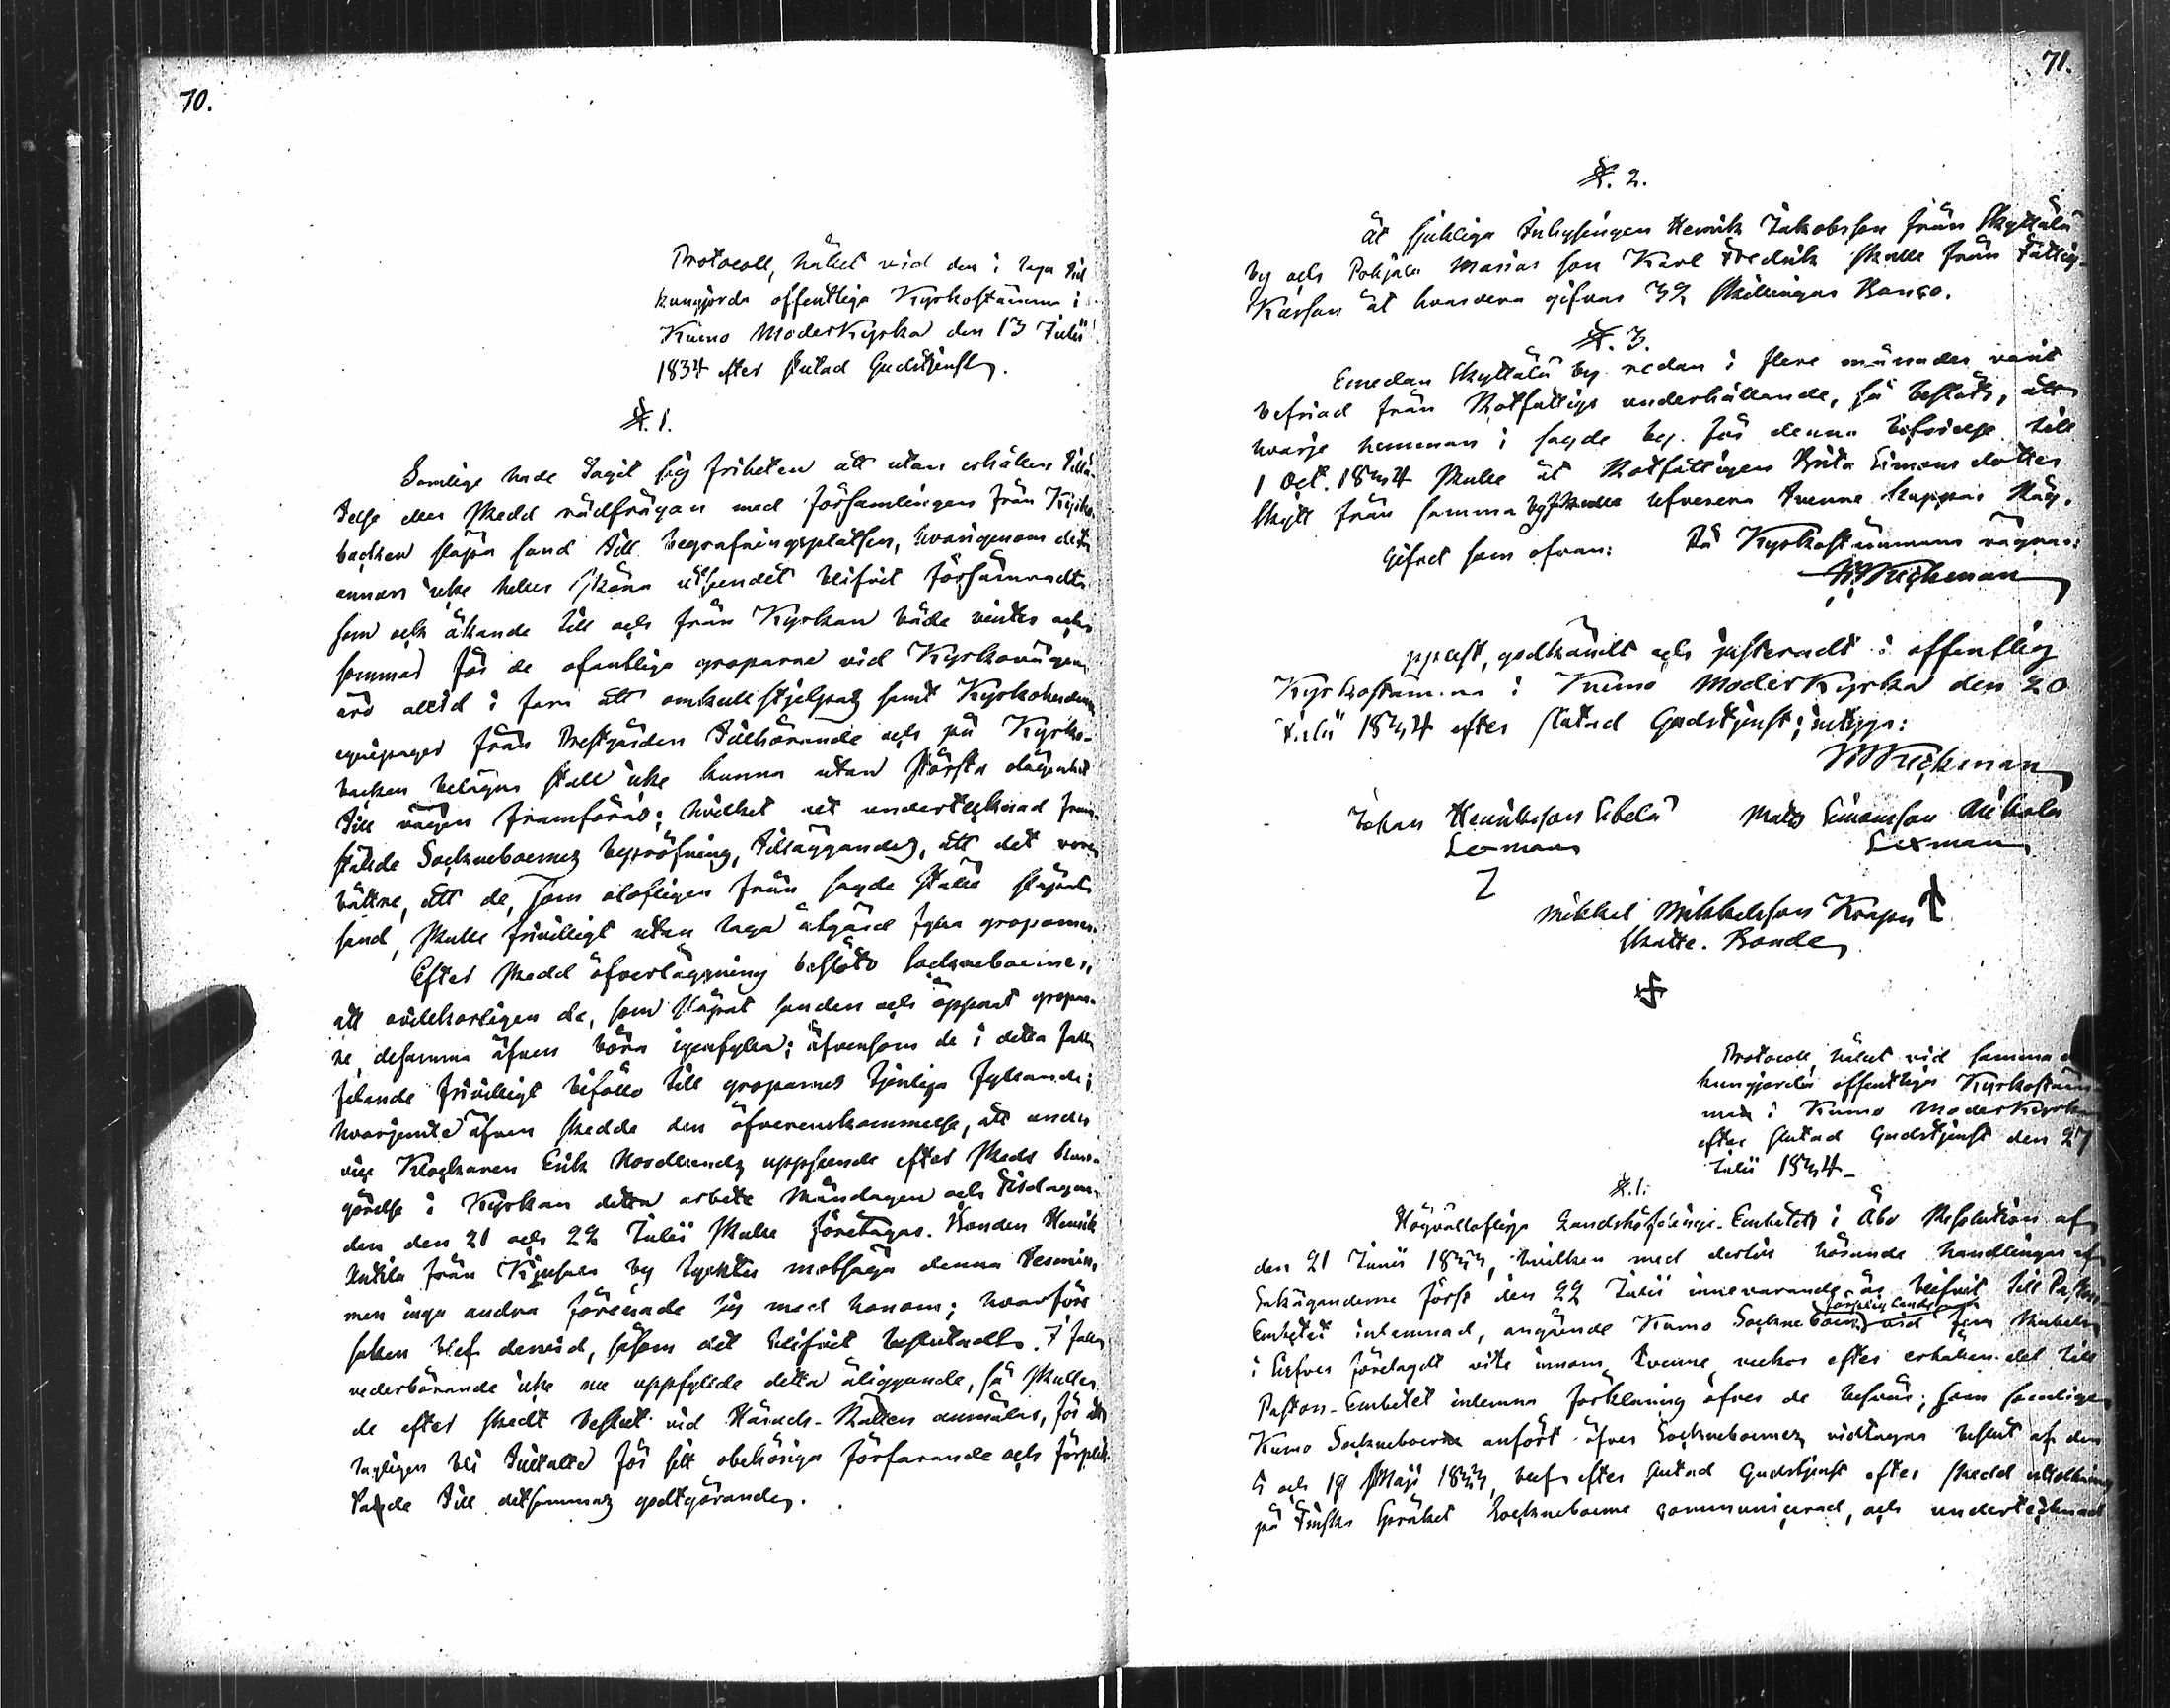 70.
Protocoll, hållet vid den i laga tid
kungjorda offentliga Kyrkostämma i
Kumo ModerKyrka den 13 Julii
1834 efter slutad Gudstjenst.
§. 1.
Somlige hade tagit sig friheten att utan erhållen tillå-
telse eller skedd rådfrågan med församlingen från Kyrko
backen släpa sand till begrafningsplatsen, hvarigenom dets
annars icke heller sköna utseendet blifvit försämradt
som ock åkande till och från Kyrkan både vinter och
sommar för de ofantliga groparne vid Kyrkovägen
äro alltid i fara att omkullstjelpas samt Kyrkoherdens
equipager från Prestgården tillhörande och på Kyrko-
backen belägna stall icke kunna utan största olägenhet
till vägen framföras; hvilket allt undertecknad fram-
stälde Sockneboernes bepröfning, tilläggande, att det vore
bättre, att de, som olofligen från sagde ställe släpat
sand, skulle frivilligt utan laga åtgärd fylla groparne.
Efter skedd öfverläggning beslöto Sockneboerne,
att ovilkorligen de, som släpat sanden och öppnat gropar-
ne, desamma äfven böra igenfylla; äfvensom de i detta fall
felande frivilligt biföllo till groparnes tjenliga fyllande;
hvarjemte äfven skedde den öfverenskommelse, att under
vice Klockaren Erik Nordlunds uppseende efter skedd kun-
görelse i Kyrkan detta arbete Måndagen och Tisdagen
den den 21 och 22 Julii skulle företagas. Bonden Henrik
från by tycktes motsäga denna termin,
men inga andra förenade sig med honom; hvarföre
saken blef dervid, såsom det blifvit beslutadt. I fall
vederbörande icke nu uppfylde detta åliggande, så skulle
de efter skedt beslut vid Härads-Rätten anmälas, för att
lagligen bli tilltalte för sitt obehöriga förfarande och förplik-
tade till detsammas godtgörande.
71.
§. 2.
Åt sjuklige Inhysingen Henrik Jakobsson från Skyttälä
by och Pohjala Marias son Karl Fredrik skulle från Fattig-
Kassan åt hvardera gifvas 32 skillingar Banco.
§. 3.
Emedan Skyttälä by redan i flere månader varit
befriad från Rotfattigs underhållande, så beslöts, att
hvarje hemman i sagde by för denna befrielse till
1 Oct. 1834 skulle åt Rotfattigen Brita Simonsdotter
Skytt från samma by skulle lefverera tvenne kappar Råg.
Gifvet som ofvan: På Kyrkostämmans vägnar:
Uppläst, godkändt och justeradt i offentlig
Kyrkostämma i Kumo ModerKyrka den 20
Julii 1834 efter slutad Gudstjenst; intyga:
Johan Henriksson Mats Simonsson
Sexman Sexman
Mikkel Mikkelsson
Skatte-Bonde
Protocoll hållet vid samma
kungjorda offentliga Kyrkostäm-
ma i Kumo ModerKyrka
efter slutad Gudstjenst den 27
Julii 1834
§. 1.
Högvällofliga Landshöfdinge-Embetets i Åbo Resolution af
den 21 Junii 1833, hvilken med dertill hörande handlingar af
Sakäganderne först den 22 Julii innevarande år blifvit till Pastors-
Embetet inlemnad, angående Kumo Sockneboers förpligtande vid fem Rubels
i Silfver förelagdt vite innom tvenne veckor efter erhållen del till
Pastors-Embetet inlemna förklaring öfver de besvär, som somlige
Kumo Sockneboerne anfört öfver Sockneboernes vidtagna beslut af den
5 och 19 Maji 1833, blef efter slutad Gudstjenst efter skedd uttolkning
på Finska Språket Sockneboerne communicerad, och undertecknad